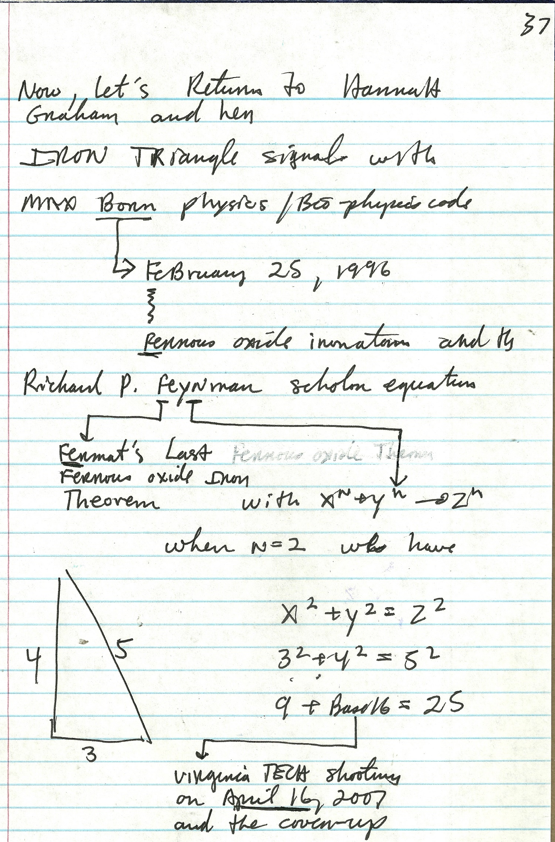 37
Now, Let's Return to Hannah
Graham and her
IRON TRiangle signals with
MAX Born physics / Bio-physics code
FeBruary 25, 1996
Ferrous oxide iron atom and the
Richard P. Feynman scholar equation
Fermat's Last Ferrous oxide Theorem
Ferrous oxide Iron
Theorem with X^N + y^n → Z^n
when N=2 who have
4 5
3
X^2 + y^2 = Z^2
3^2 + 4^2 = 5^2
9 + Base16 = 25
Virginia TECH shooting
on April 16, 2007
and the cover-up